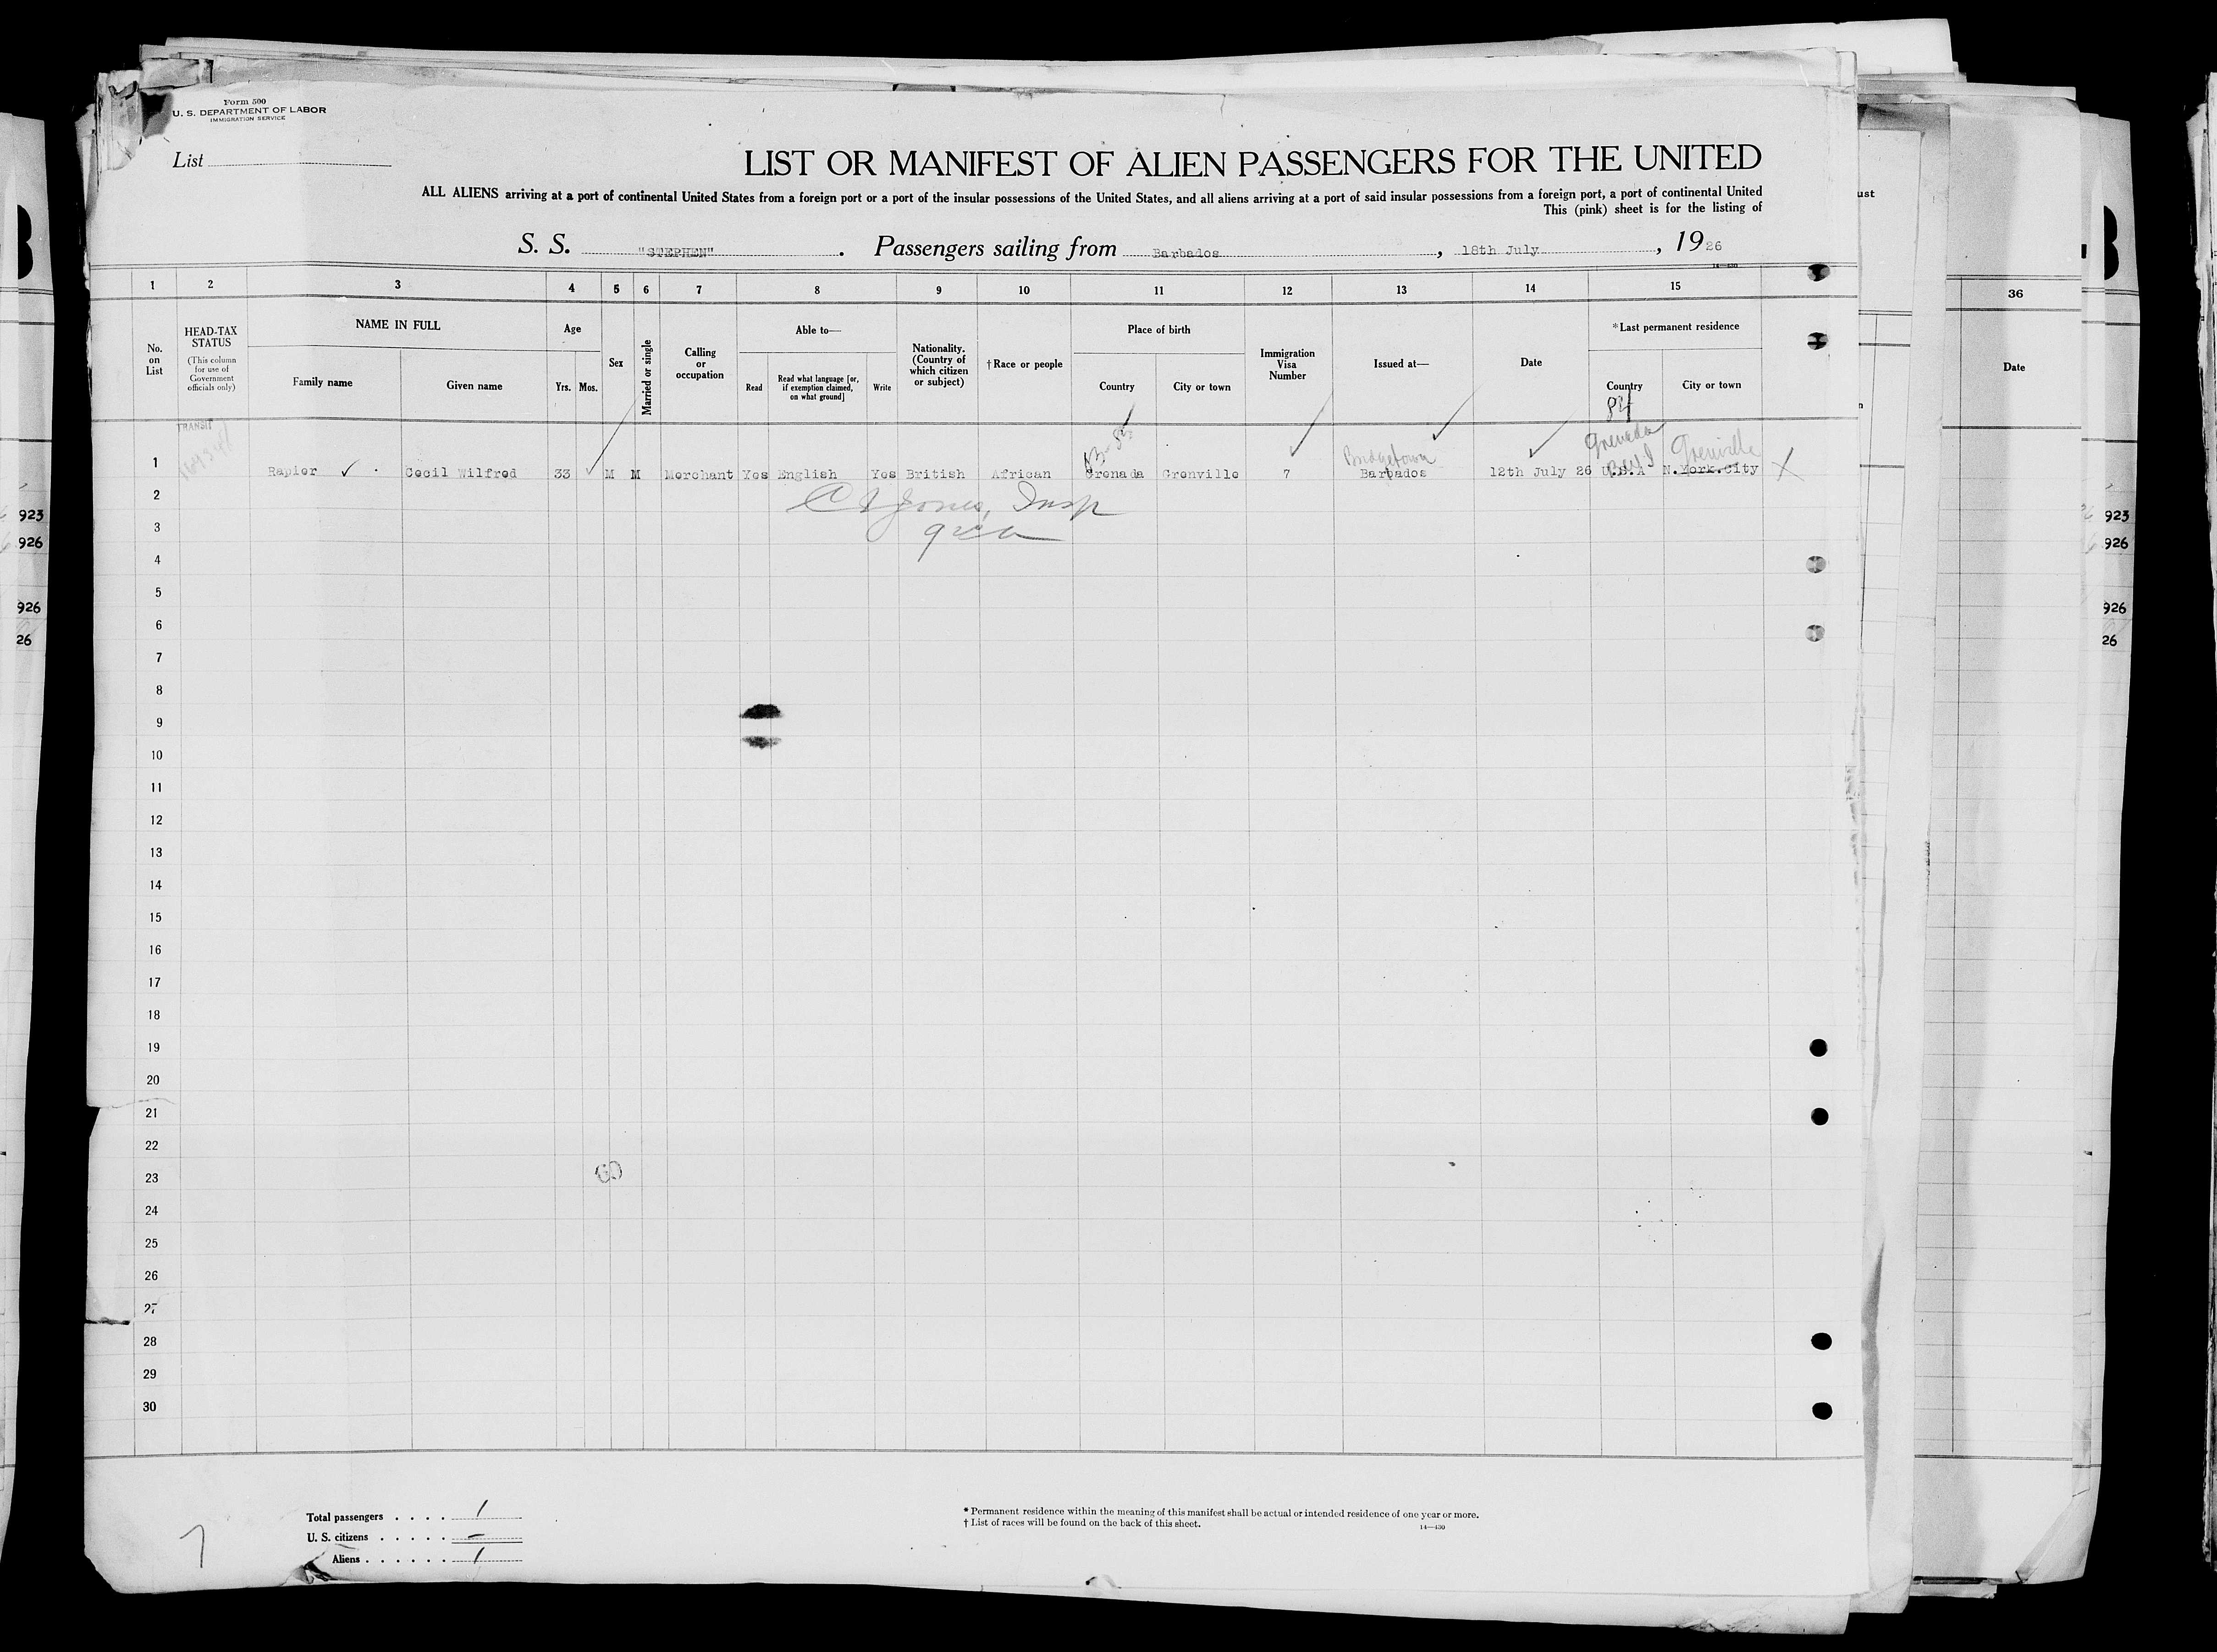 Form 500
U. S. DEPARTMENT OF LABOR
IMMIGRATION SERVICE
List
LIST OR MANIFEST OF ALIEN PASSENGERS FOR THE UNITED
ALL ALIENS arriving at a port of continental United States from a foreign port or a port of the insular possessions of the United States, and all aliens arriving at a port of said insular possessions from a foreign port, a port of continental United
This (pink) sheet is for the listing of
S. S. "STEPHEN". Passengers sailing from Barbados, 18th July, 1926
14—430
1 2 3 4 5 6 7 8 9 10 11 12 13 14 15
No. on List
HEAD-TAX STATUS
(This column for use of Government officials only)
NAME IN FULL
Family name
Given name
Age
Yrs. Mos.
Sex
Married or single
Calling or occupation
Able to—
Read
Read what language [or, if exemption claimed, on what ground]
Write
Nationality. (Country of which citizen or subject)
†Race or people
Place of birth
Country
City or town
Immigration Visa Number
Issued at—
Date
*Last permanent residence
Country
City or town
84
TRANSIT
Bridgetown Grenada Grenville
BWI
1 Rapier ✓ Cecil Wilfred 33 ✓ M M Merchant Yes English Yes British African Grenada Grenville 7 Barbados 12th July 26 U.S.A N.York.City X
2
Jones, Insp
3
4
5
6
7
8
9
10
11
12
13
14
15
16
17
18
19
20
21
22
23
24
25
26
27
28
29
30
Total passengers . . . . 1
U. S. citizens . . . . . —
Aliens . . . . . . 1
7
* Permanent residence within the meaning of this manifest shall be actual or intended residence of one year or more.
† List of races will be found on the back of this sheet.
14—430
36
Date
ust
923
926
926
26
923
926
926
26